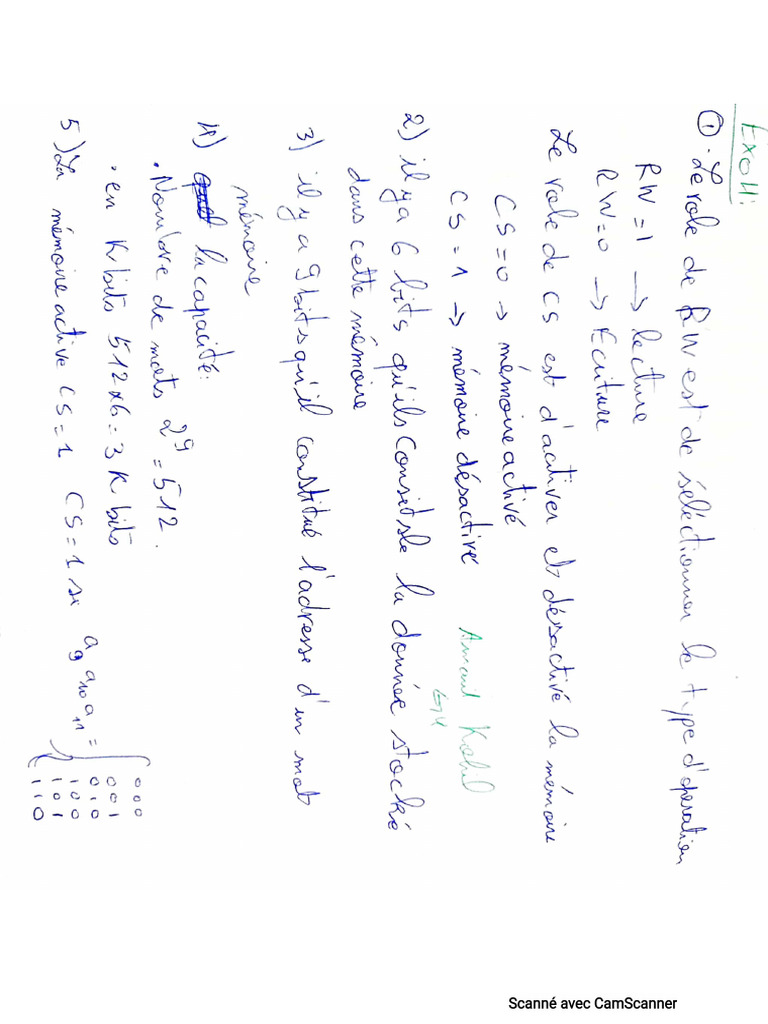 Exo 4:
① . Le role de RW est de séléctionner le type d'operation
RW=1 → lecture
RW=0 → Ecriture
Le role de CS est d'activer et désactivé la mémoire
CS=0 → mémoire activé
CS=1 → mémoire désactivé
2) il ya 6 bits qu'ils consitsde la donnée stocké
dans cette mémoire
3) il y a 9 bits qu'il constitué l'adresse d'un mot
mémoire
4) la capacité:
. Nombre de mots 2⁹ = 512.
. en K bits 512x6 = 3 K bits
5) La mémoire active CS=1 CS=1 si a₉ a₁₀ a₁₁ = {
000
001
010
100
101
110
Scanné avec CamScanner